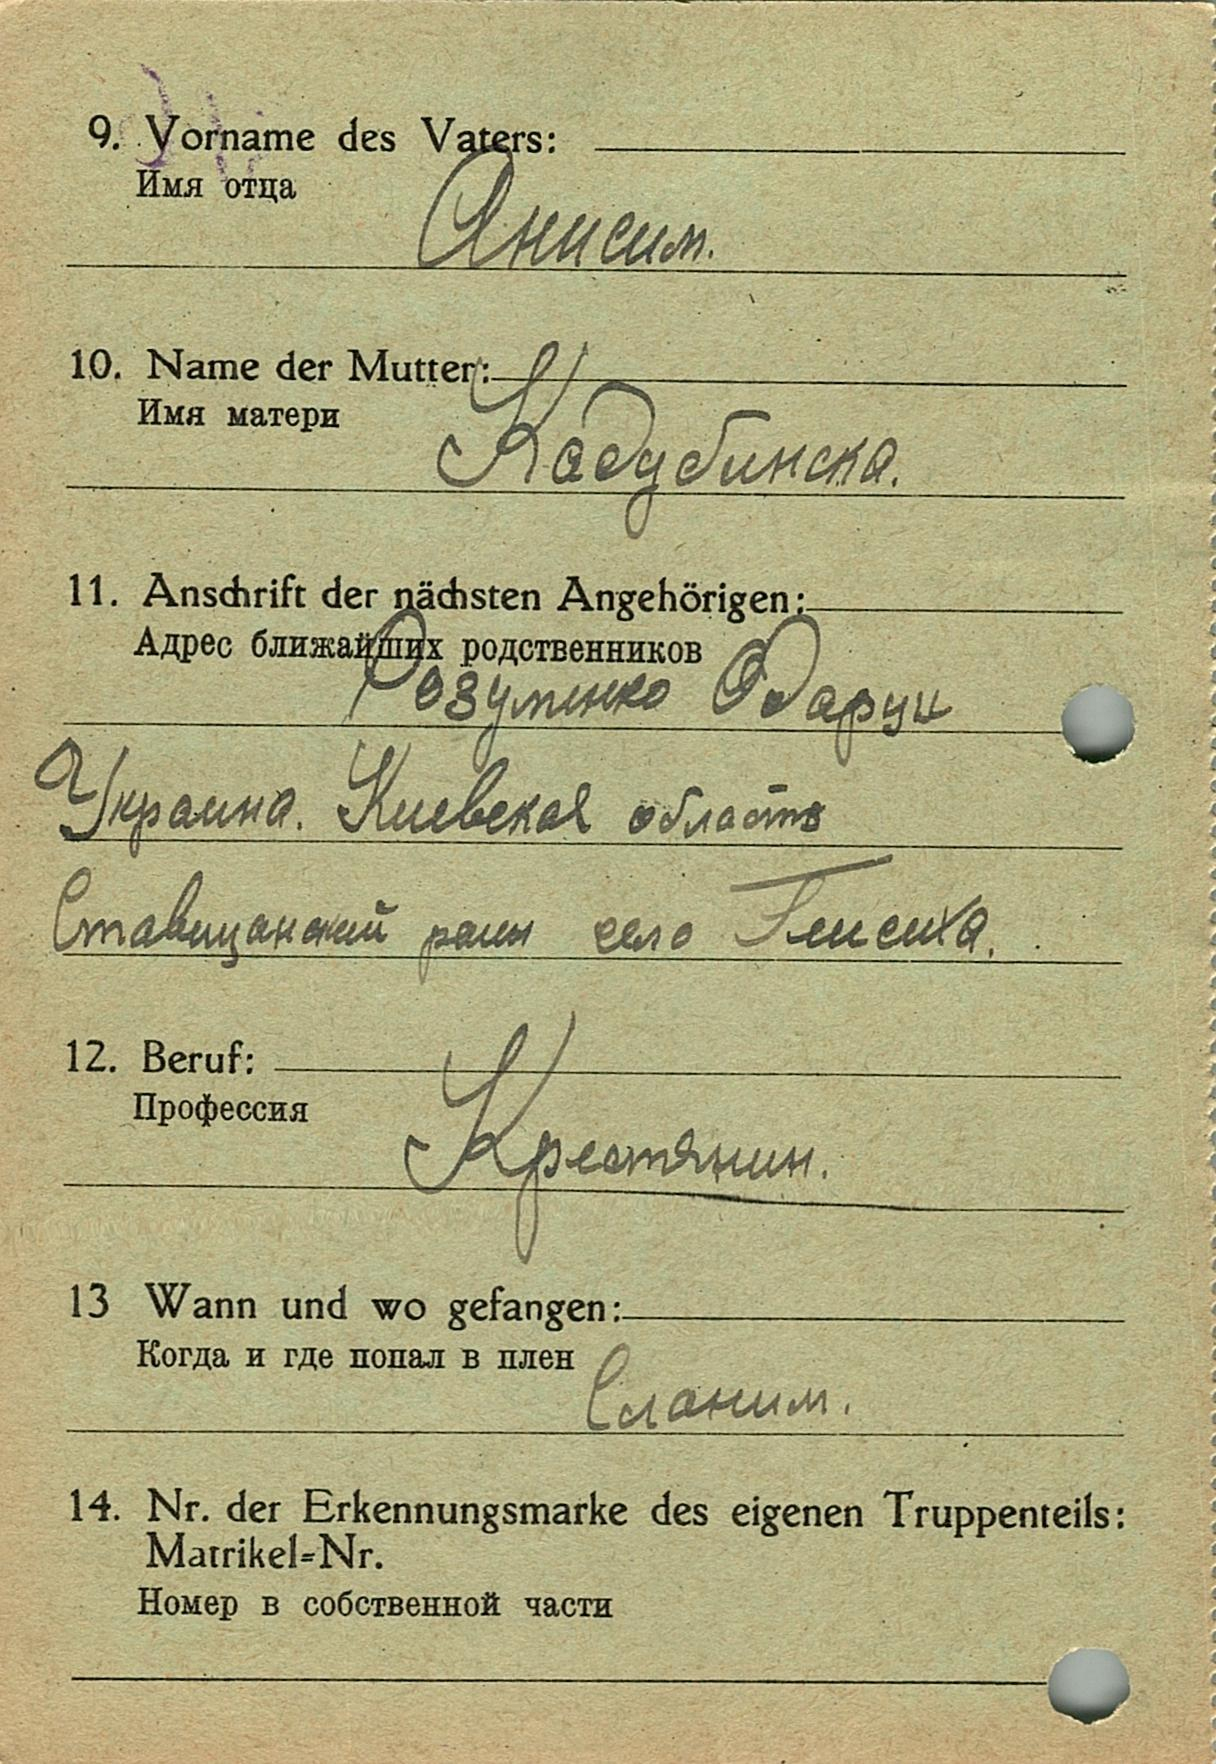 9. Vorname des Vaters:
Имя отца
Анисим.
10. Name der Mutter:
Имя матери
Кадубинска.
11. Anschrift der nächsten Angehörigen:
Адрес ближайших родственников
Розуменко Одарци
Украина. Киевская область
Ставищанский раин село Гейсиха.
12. Beruf:
Профессия
Крестянин.
13 Wann und wo gefangen:
Когда и где попал в плен
Сланим.
14. Nr. der Erkennungsmarke des eigenen Truppenteils:
Matrikel=Nr.
Номер в собственной части